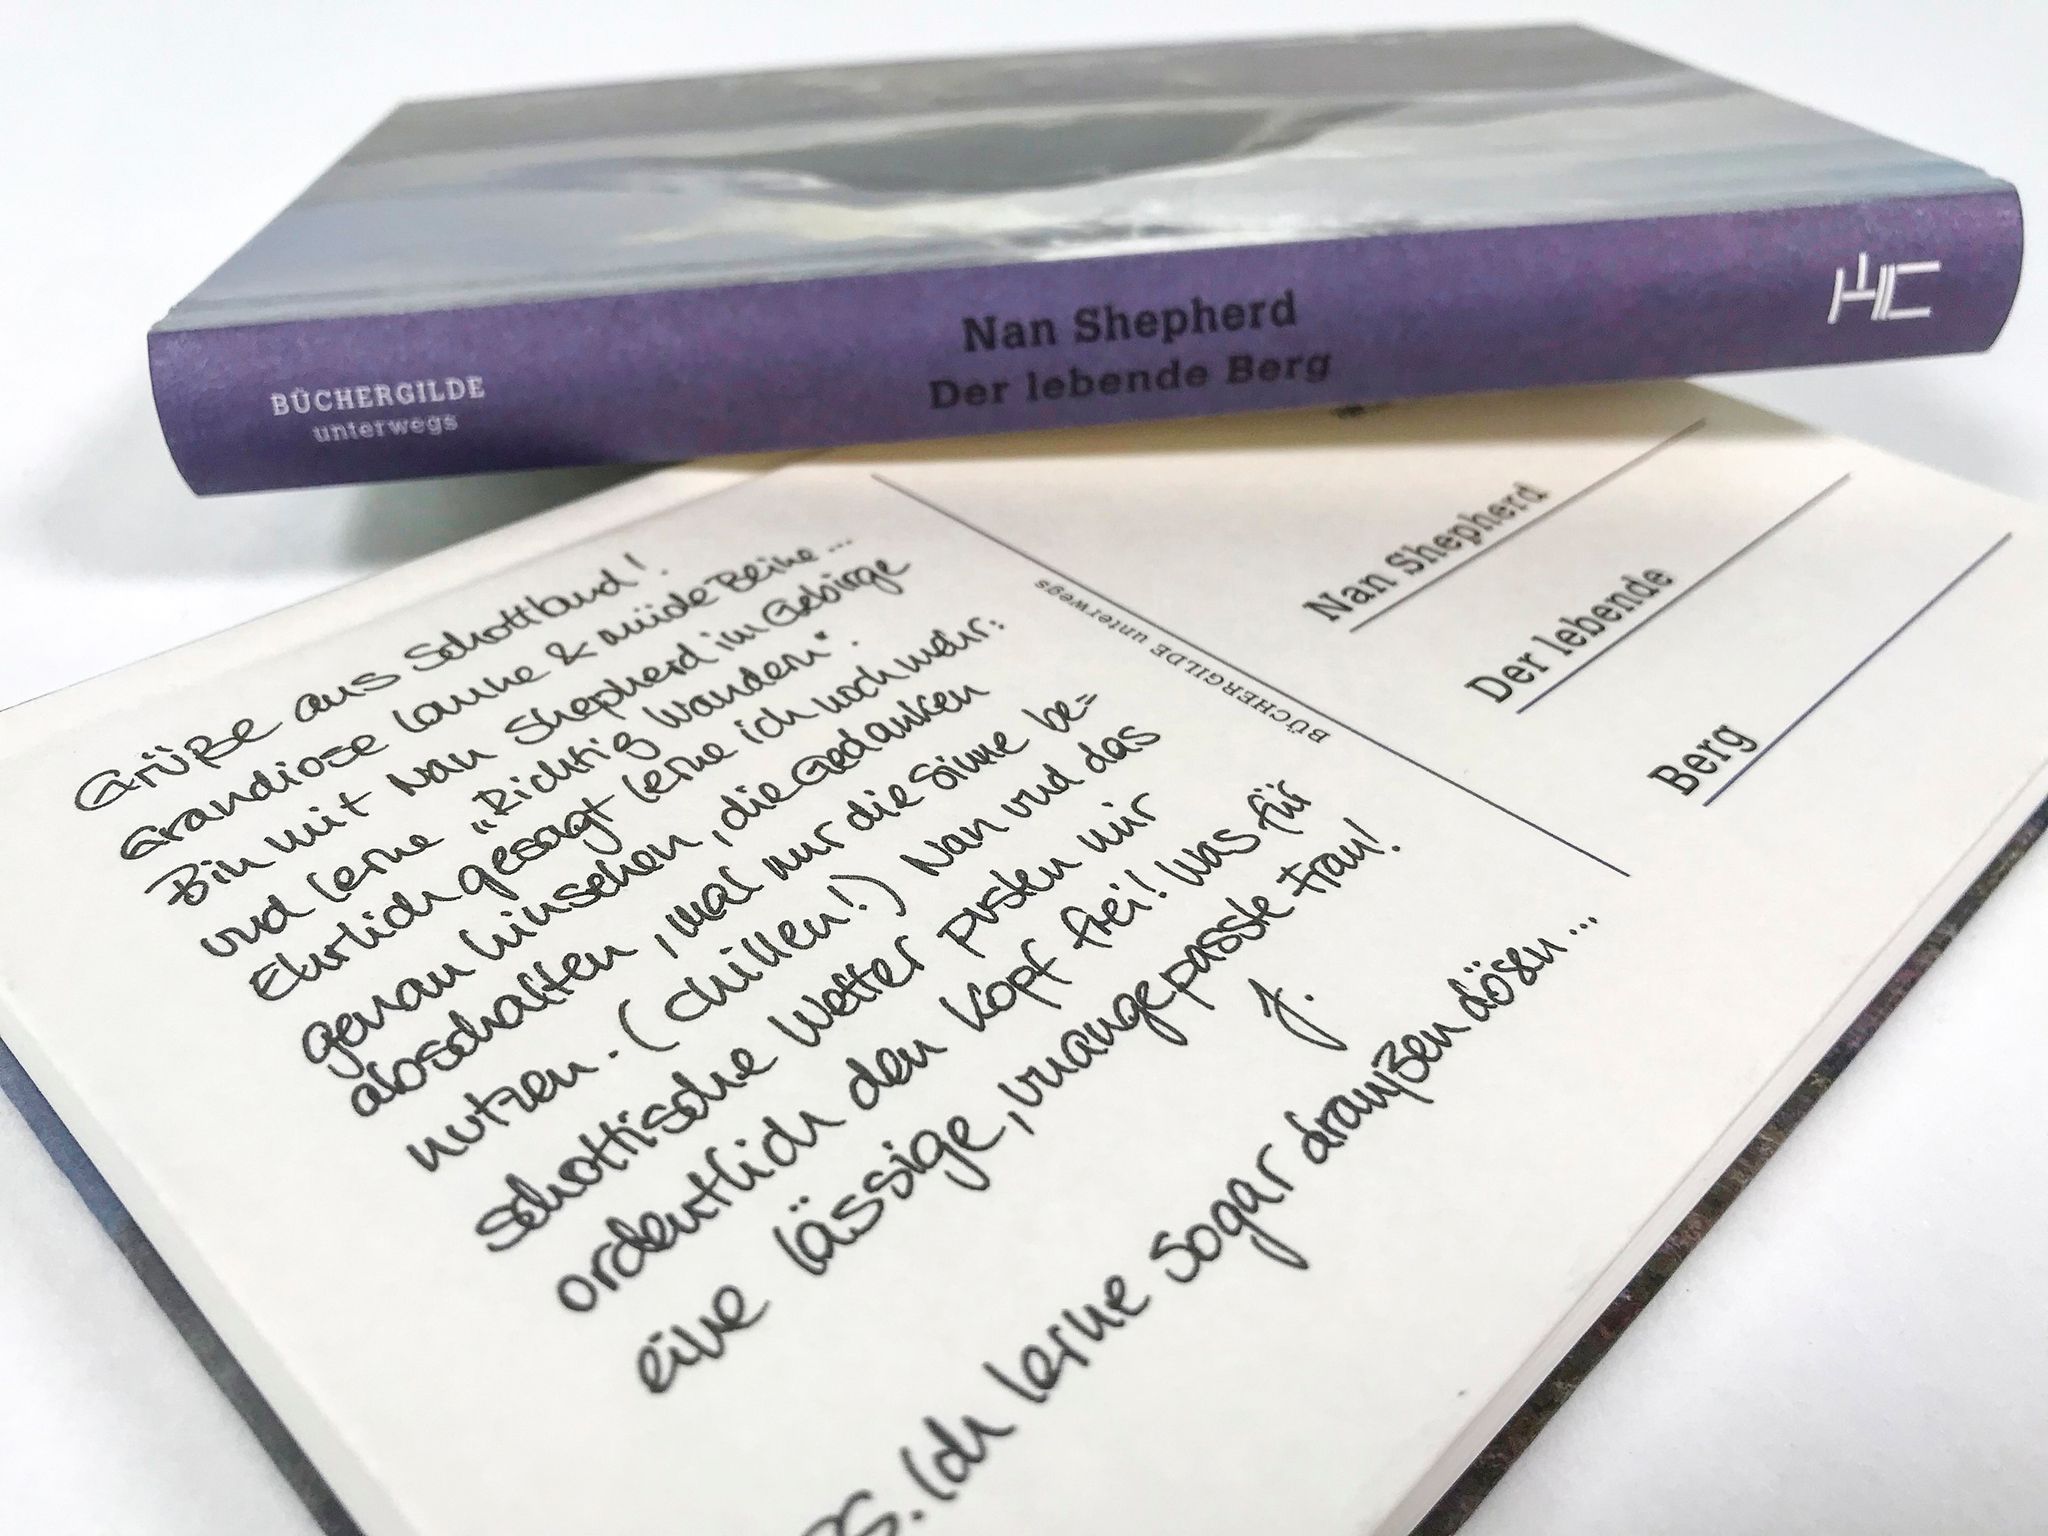 BÜCHERGILDE
unterwegs
Nan Shepherd
Der lebende Berg
Grüße aus Schottland!
Grandiose Laune & müde Beine...
Bin mit Nan Shepherd im Gebirge
und lerne „Richtig Wandern“.
Ehrlich gesagt lerne ich noch mehr:
genau hinsehen, die Gedanken
abschalten, mal nur die Sinne be=
nutzen. (Chillen!) Nan und das
schottische Wetter pusten mir
ordentlich den Kopf frei! Was für
eine lässige, unangepasste Frau!
J.
PS. Ich lerne sogar draußen dösen...
BÜCHERGILDE unterwegs
Nan Shepherd
Der lebende
Berg